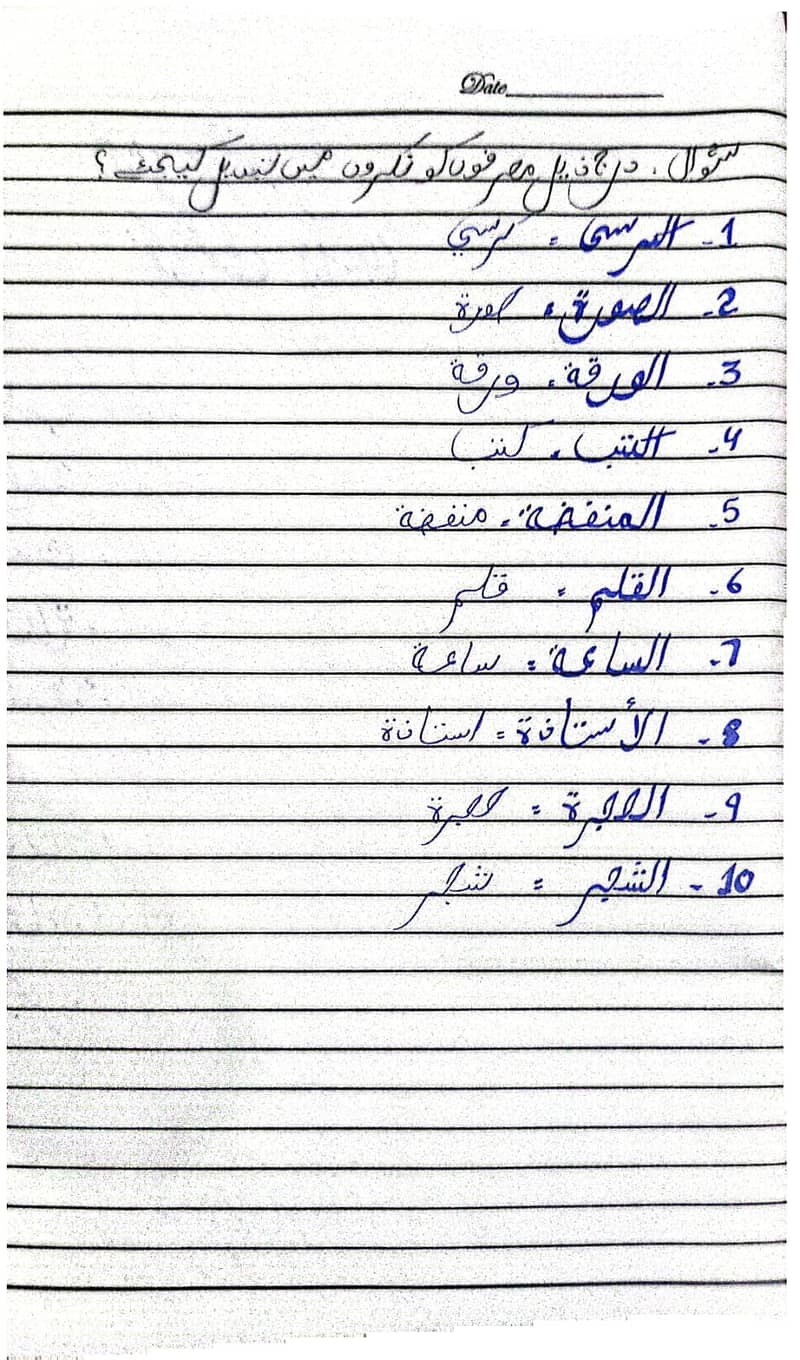 Date
سئوال . درج ذیل معرفوں کو نکروں میں تبدیل کیجئے ؟
1- الكرسي = كرسي
2- الصورة = صورة
3- الورقة = ورقة
4- الكتب = كتب
5- المنفضة = منفضة
6- القلم = قلم
7- الساعة = ساعة
8- الأستاذة = استاذة
9- الحجرة = حجرة
10- الشجر = شجر